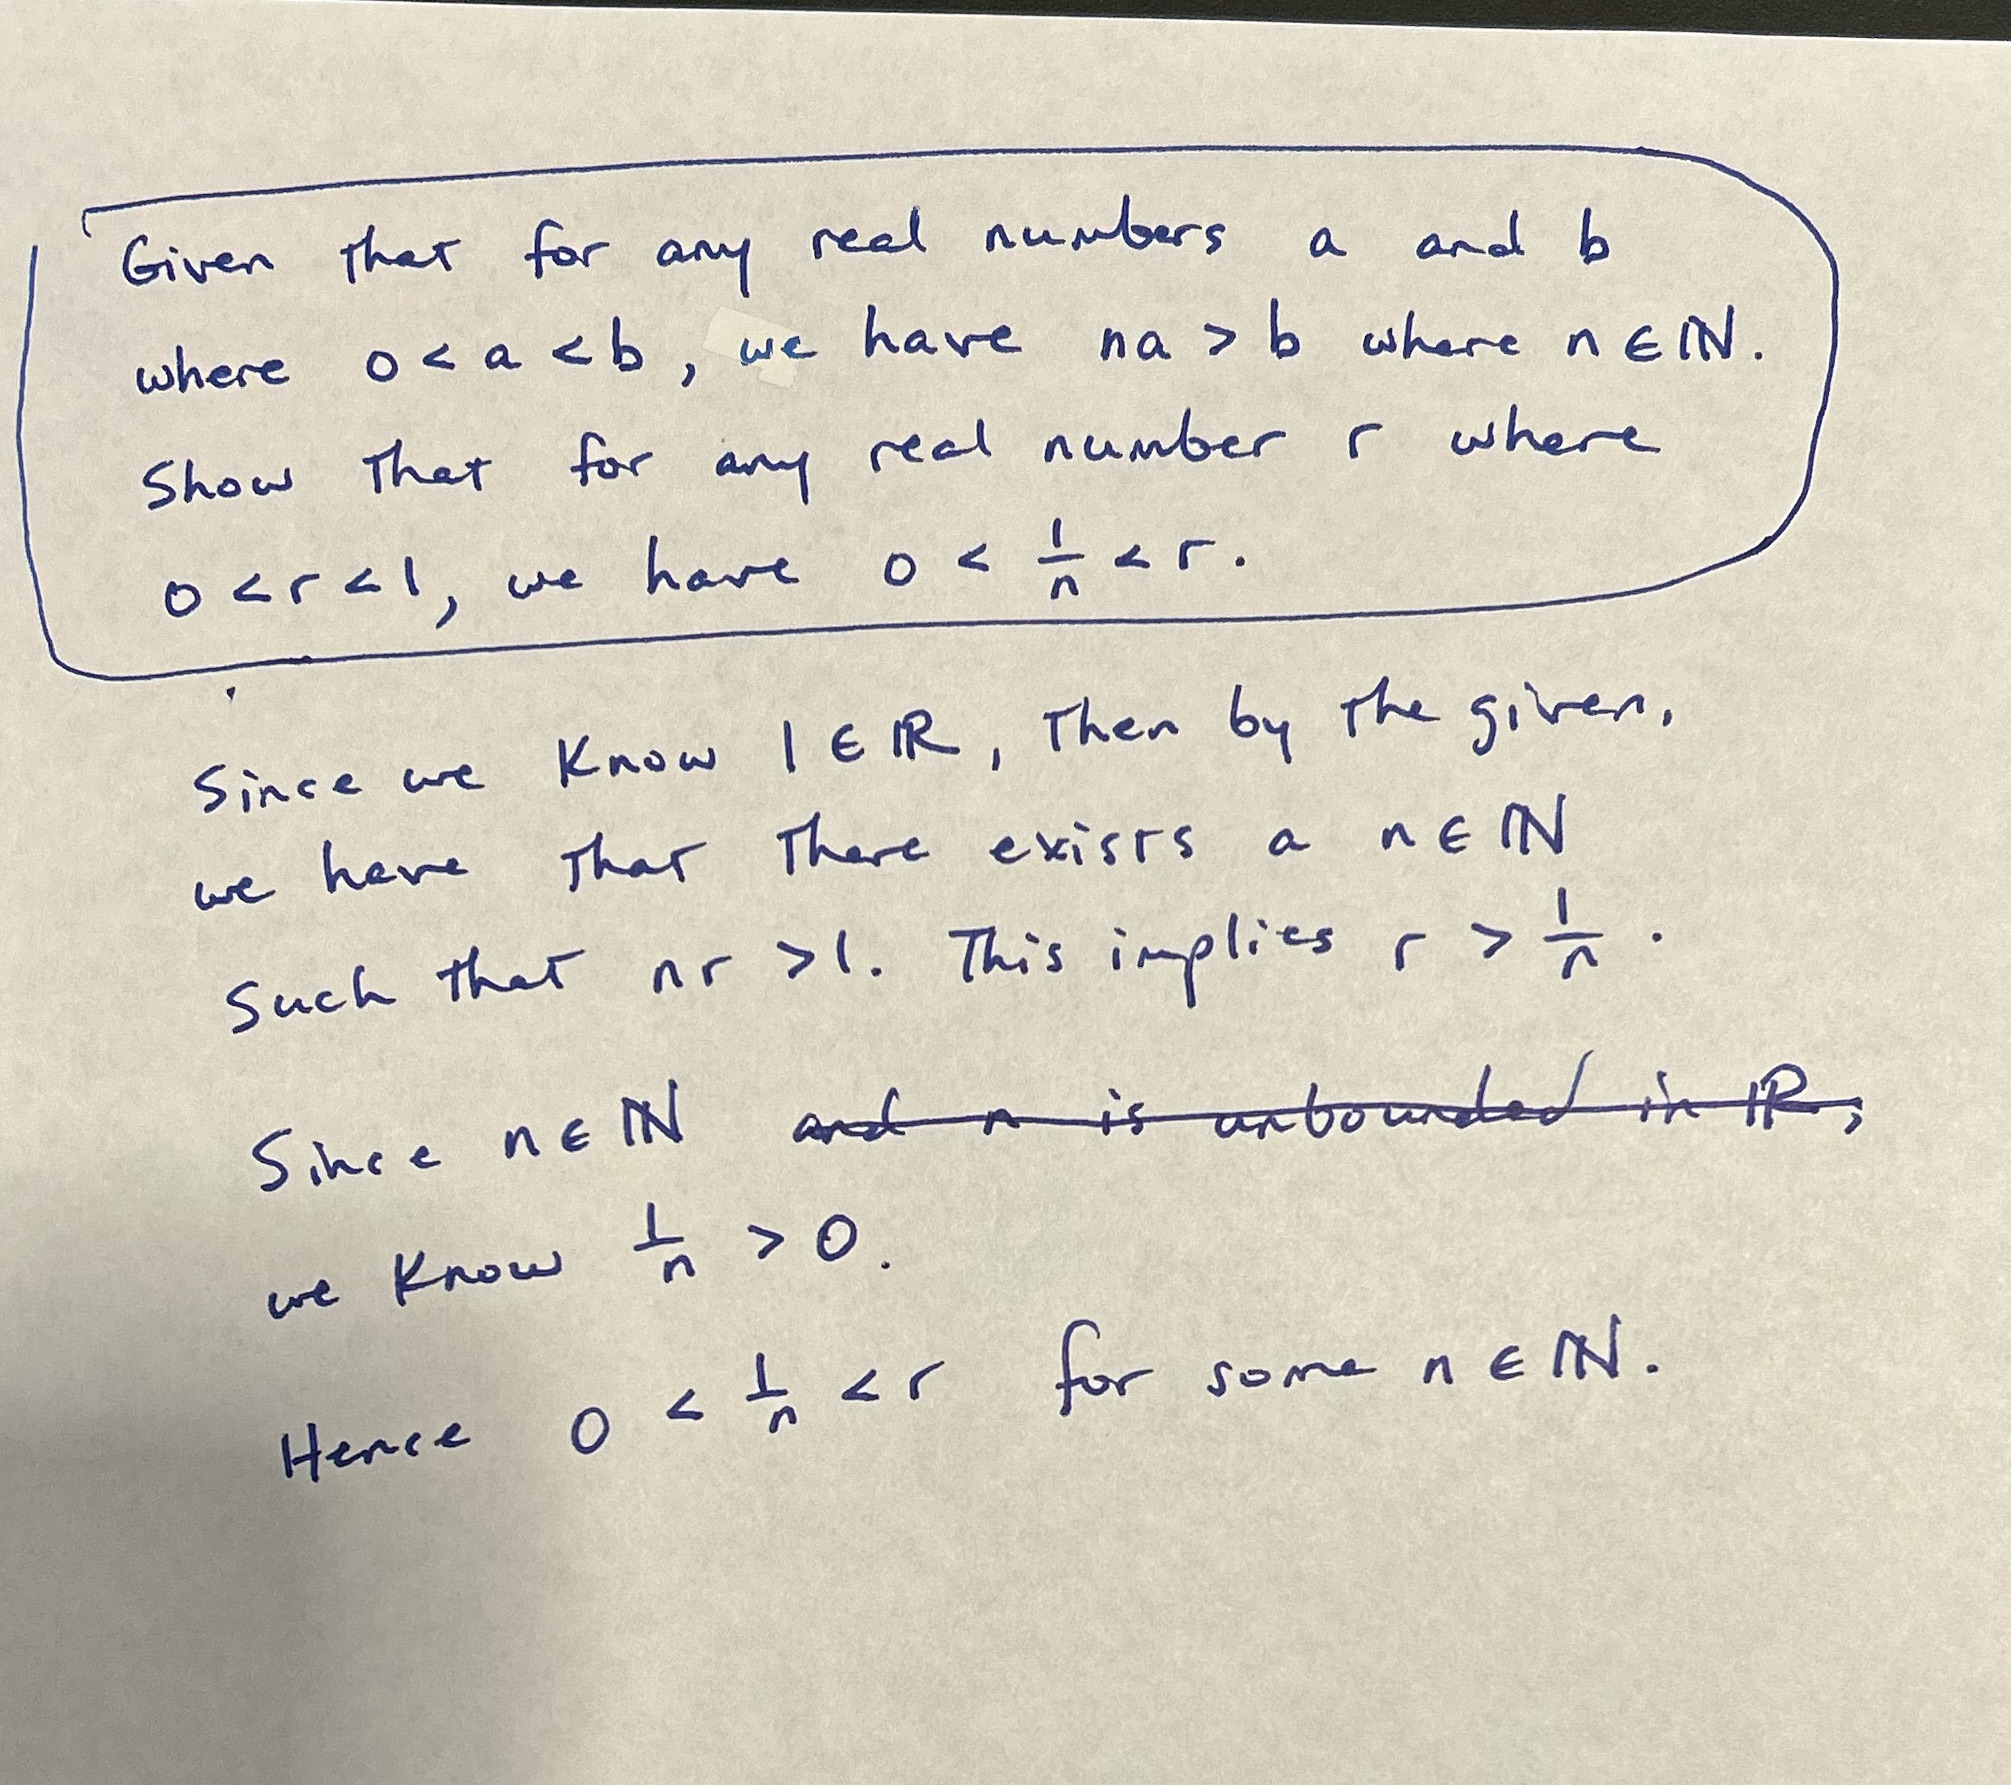 Given that for any real numbers a and b
where 0 < a < b, we have na > b where n ∈ ℕ.
Show that for any real number r where
0 < r < 1, we have 0 < 1/n < r.
Since we know 1 ∈ ℝ, then by the given,
we have that there exists a n ∈ ℕ
such that nr > 1. This implies r > 1/n.
Since n ∈ ℕ and n is unbounded in ℝ,
we know 1/n > 0.
Hence 0 < 1/n < r for some n ∈ ℕ.